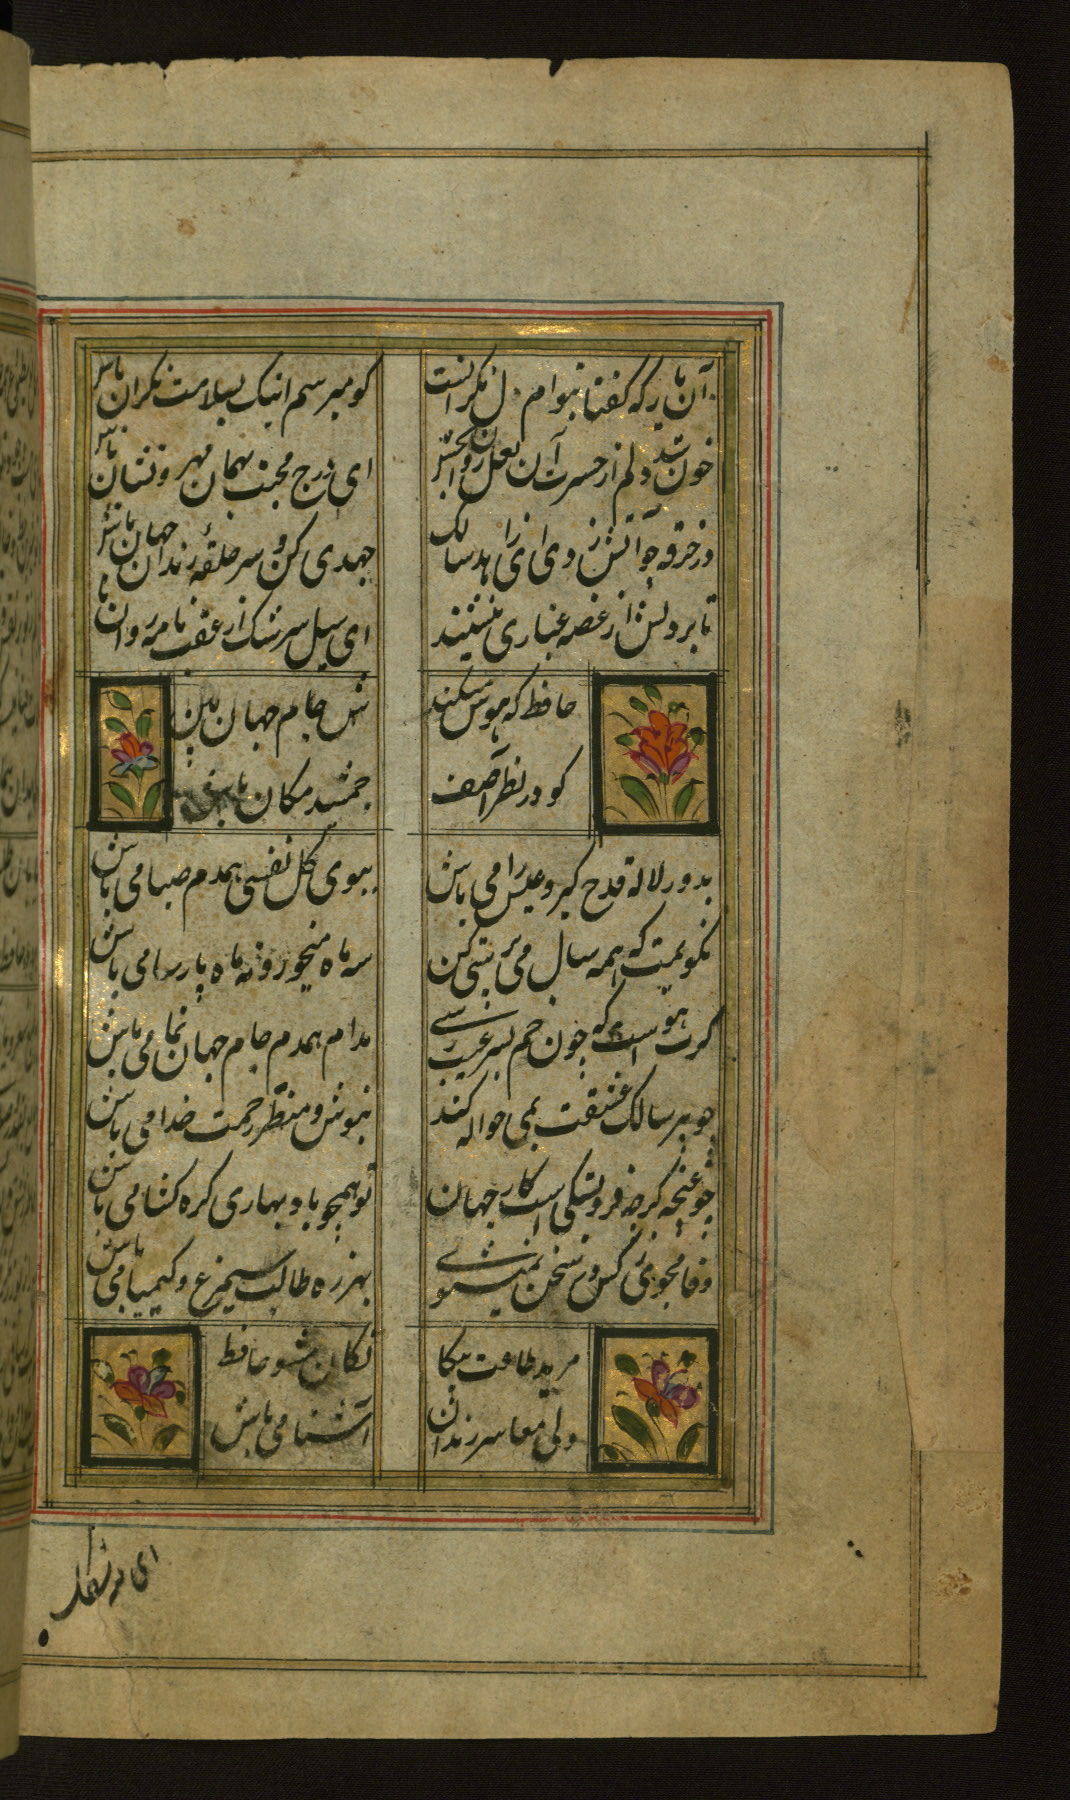 آن یار که کفتا بتوام دل نکرانست
کو میرسم اینک بسلامت نکران باش
خون شد دلم از حسرت آن لعل روان بخش
ای درج محبت بهمان مهر و نشان باش
در خرقه چو آتش زدی ای زاهد سالک
جهدی کن و سر حلقهٔ رندان جهان باش
تا بر دلش از غصه غباری ننشیند
ای سیل سرشک از عقب نامه روان باش
حافظ که هوس میکند
ش جام جهان بین
کو در نظر آصف
جمشید مکان باش
بدور لاله قدح کیر و بی ریا می باش
ببوی کل نفسی همدم صبا می باش
نکویمت که همه سال می پرستی کن
سه ماه میخور و نه ماه پارسا می باش
کرت هواست که چون جم بسر غیب رسی
مدام همدم جام جهان نما می باش
چو پیر سالک عشقت بمی حواله کند
بنوش و منتظر رحمت خدا می باش
چو غنچه کرچه فروبستکی است کار جهان
تو همچو باد بهاری کره کشا می باش
وفا مجوی ز کس ور سخن نمیشنوی
بهرزه طالب سیمرغ و کیمیا می باش
مرید طاعت بیکا
نکان مشو حافظ
ولی معاشر رندان
آشنا می باش